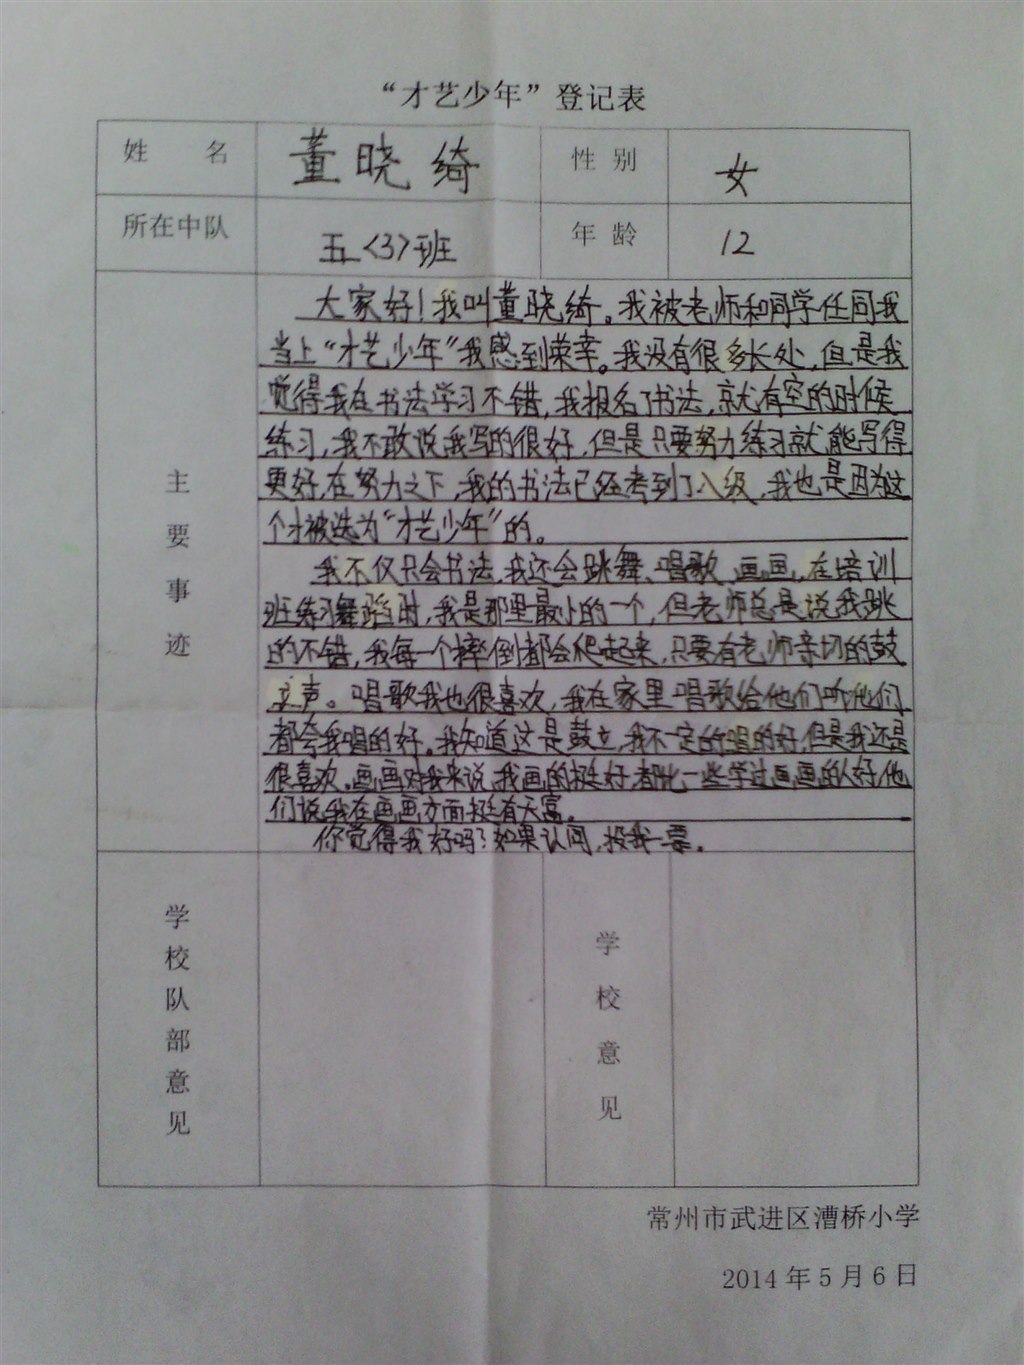 “才艺少年”登记表
姓 名 董晓绮 性别 女
所在中队 五<3>班 年龄 12
主要事迹
大家好!我叫董晓绮。我被老师和同学任同我
当上“才艺少年”我感到荣幸。我没有很多长处,但是我
觉得我在书法学习不错,我报名了书法,就有空的时候
练习,我不敢说我写的很好,但是只要努力练习就能写得
更好,在努力之下,我的书法已经考到了八级,我也是因为这
个才被选为“才艺少年”的。
我不仅只会书法,我还会跳舞、唱歌、画画,在培训
班练习舞蹈时,我是那里最小的一个,但老师总是说我跳
的不错,我每一个摔倒都会爬起来,只要有老师亲切的鼓
立声。唱歌我也很喜欢,我在家里唱歌给他们听他们
都夸我唱的好。我知道这是鼓立,我不一定的唱的好,但是我还是
很喜欢。画画对我来说,我画的挺好,都比一些学过画画的人好,他
们说我在画画方面挺有天富。
你觉得我好吗?如果认同,投我一票。
学校队部意见 学校意见
常州市武进区漕桥小学
2014年5月6日